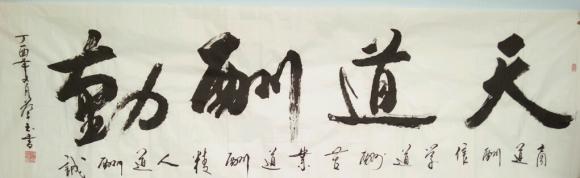 天道酬勤
商道酬信学道酬苦業道酬精人道酬誠
丁酉年